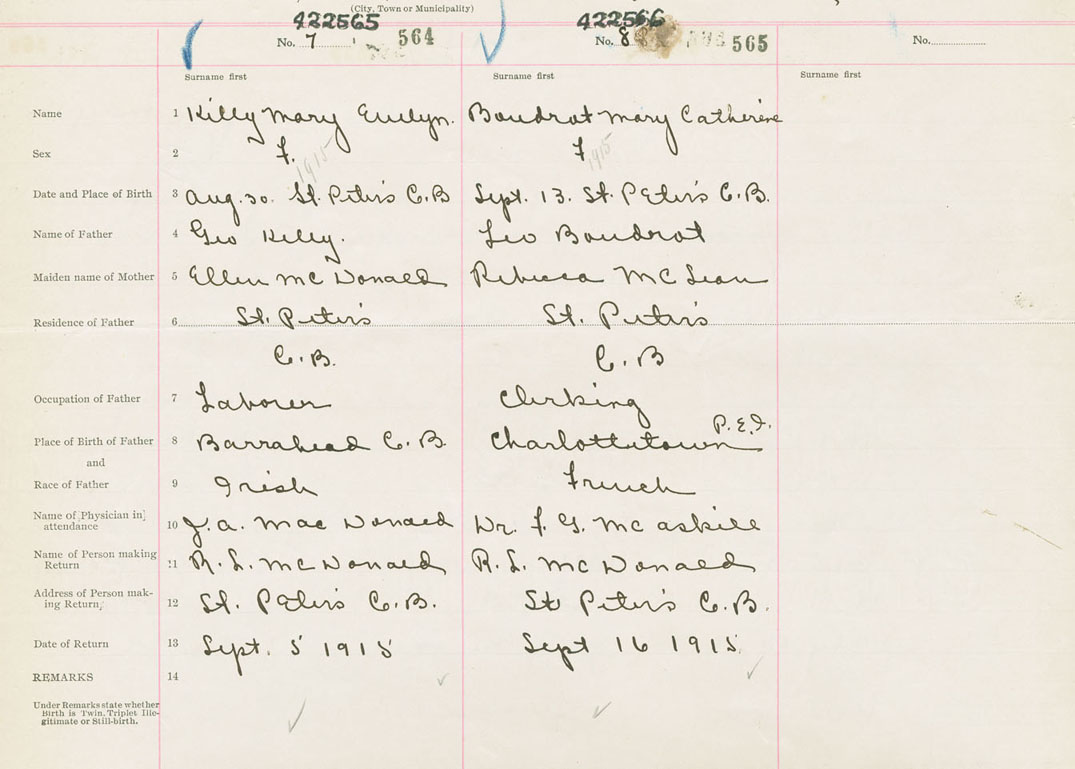 (City, Town or Municipality)
422565 422566
No. 7 564 No. 8 565 No.
Surname first Surname first Surname first
Name 1 Killy Mary Evelyn. Boudrot Mary Catherine
Sex 2 F. F
1915 1915
Date and Place of Birth 3 Aug. 30. St. Peter's C.B Sept. 13. St. Peter's C.B.
Name of Father 4 Geo Killy. Leo Boudrot
Maiden name of Mother 5 Ellen McDonald Rebecca McLean
Residence of Father 6 St. Peter's St. Peter's
C.B. C.B
Occupation of Father 7 Laborer Clerking
Place of Birth of Father 8 Barrahead C.B. Charlottetown P.E.I.
and
Race of Father 9 Irish French
Name of Physician in attendance 10 J.A. MacDonald Dr. F.G. McAskill
Name of Person making Return 11 R.L. McDonald R.L. McDonald
Address of Person making Return, 12 St. Peter's C.B. St Peter's C.B.
Date of Return 13 Sept. 5 1915 Sept 16 1915
REMARKS 14
Under Remarks state whether
Birth is Twin, Triplet Ille-
gitimate or Still-birth.